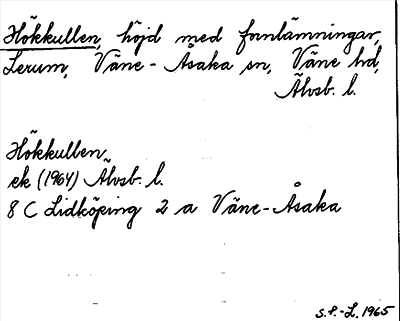 Hökkullen, höjd med fornlämningar,
Lerum, Väne-Åsaka sn, Väne hd,
Älvsb. l.
Hökkullen
ek (1964) Älvsb. l.
8 C Lidköping 2 a Väne-Åsaka
S.F.-L. 1965